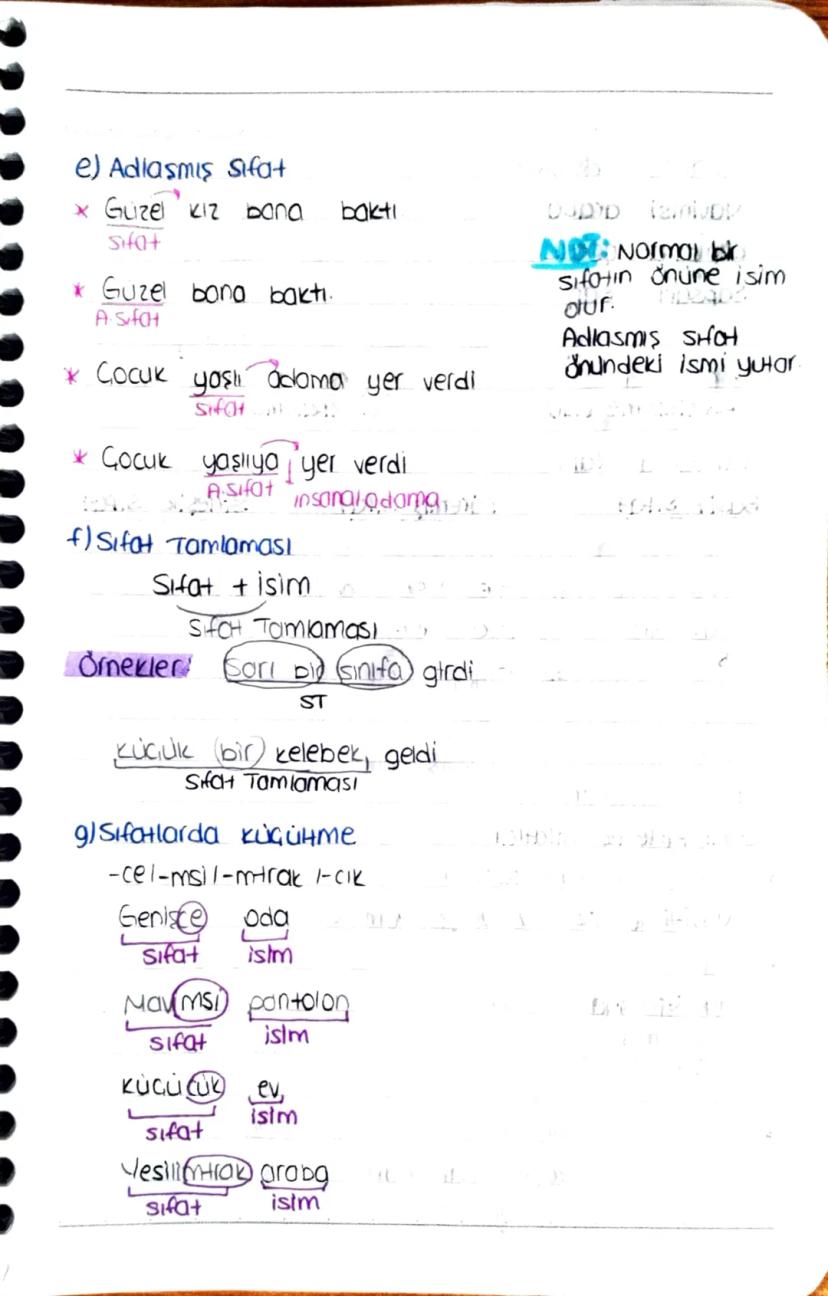 e) Adlaşmış Sıfat
* Güzel kız bana baktı
sıfat
* Güzel bana baktı.
A.sıfat
NOT: Normal bir
sıfatın önüne isim
olur.
Adlaşmış sıfat
önündeki ismi yutar.
* Çocuk yaşlı adama yer verdi
sıfat
* Çocuk yaşlıya yer verdi
A.sıfat insana/adama
f) Sıfat Tamlaması
Sıfat + isim
Sıfat Tamlaması
Örnekler: Sarı bir sınıfa girdi
ST
küçük (bir) kelebek, geldi
Sıfat Tamlaması
g) Sıfatlarda küçültme
-ce/-msi/-mtrak/-cık
Genişçe oda
sıfat isim
Mavimsi pantolon
sıfat isim
küçücük ev
sıfat isim
Yeşilimtrak araba
sıfat isim